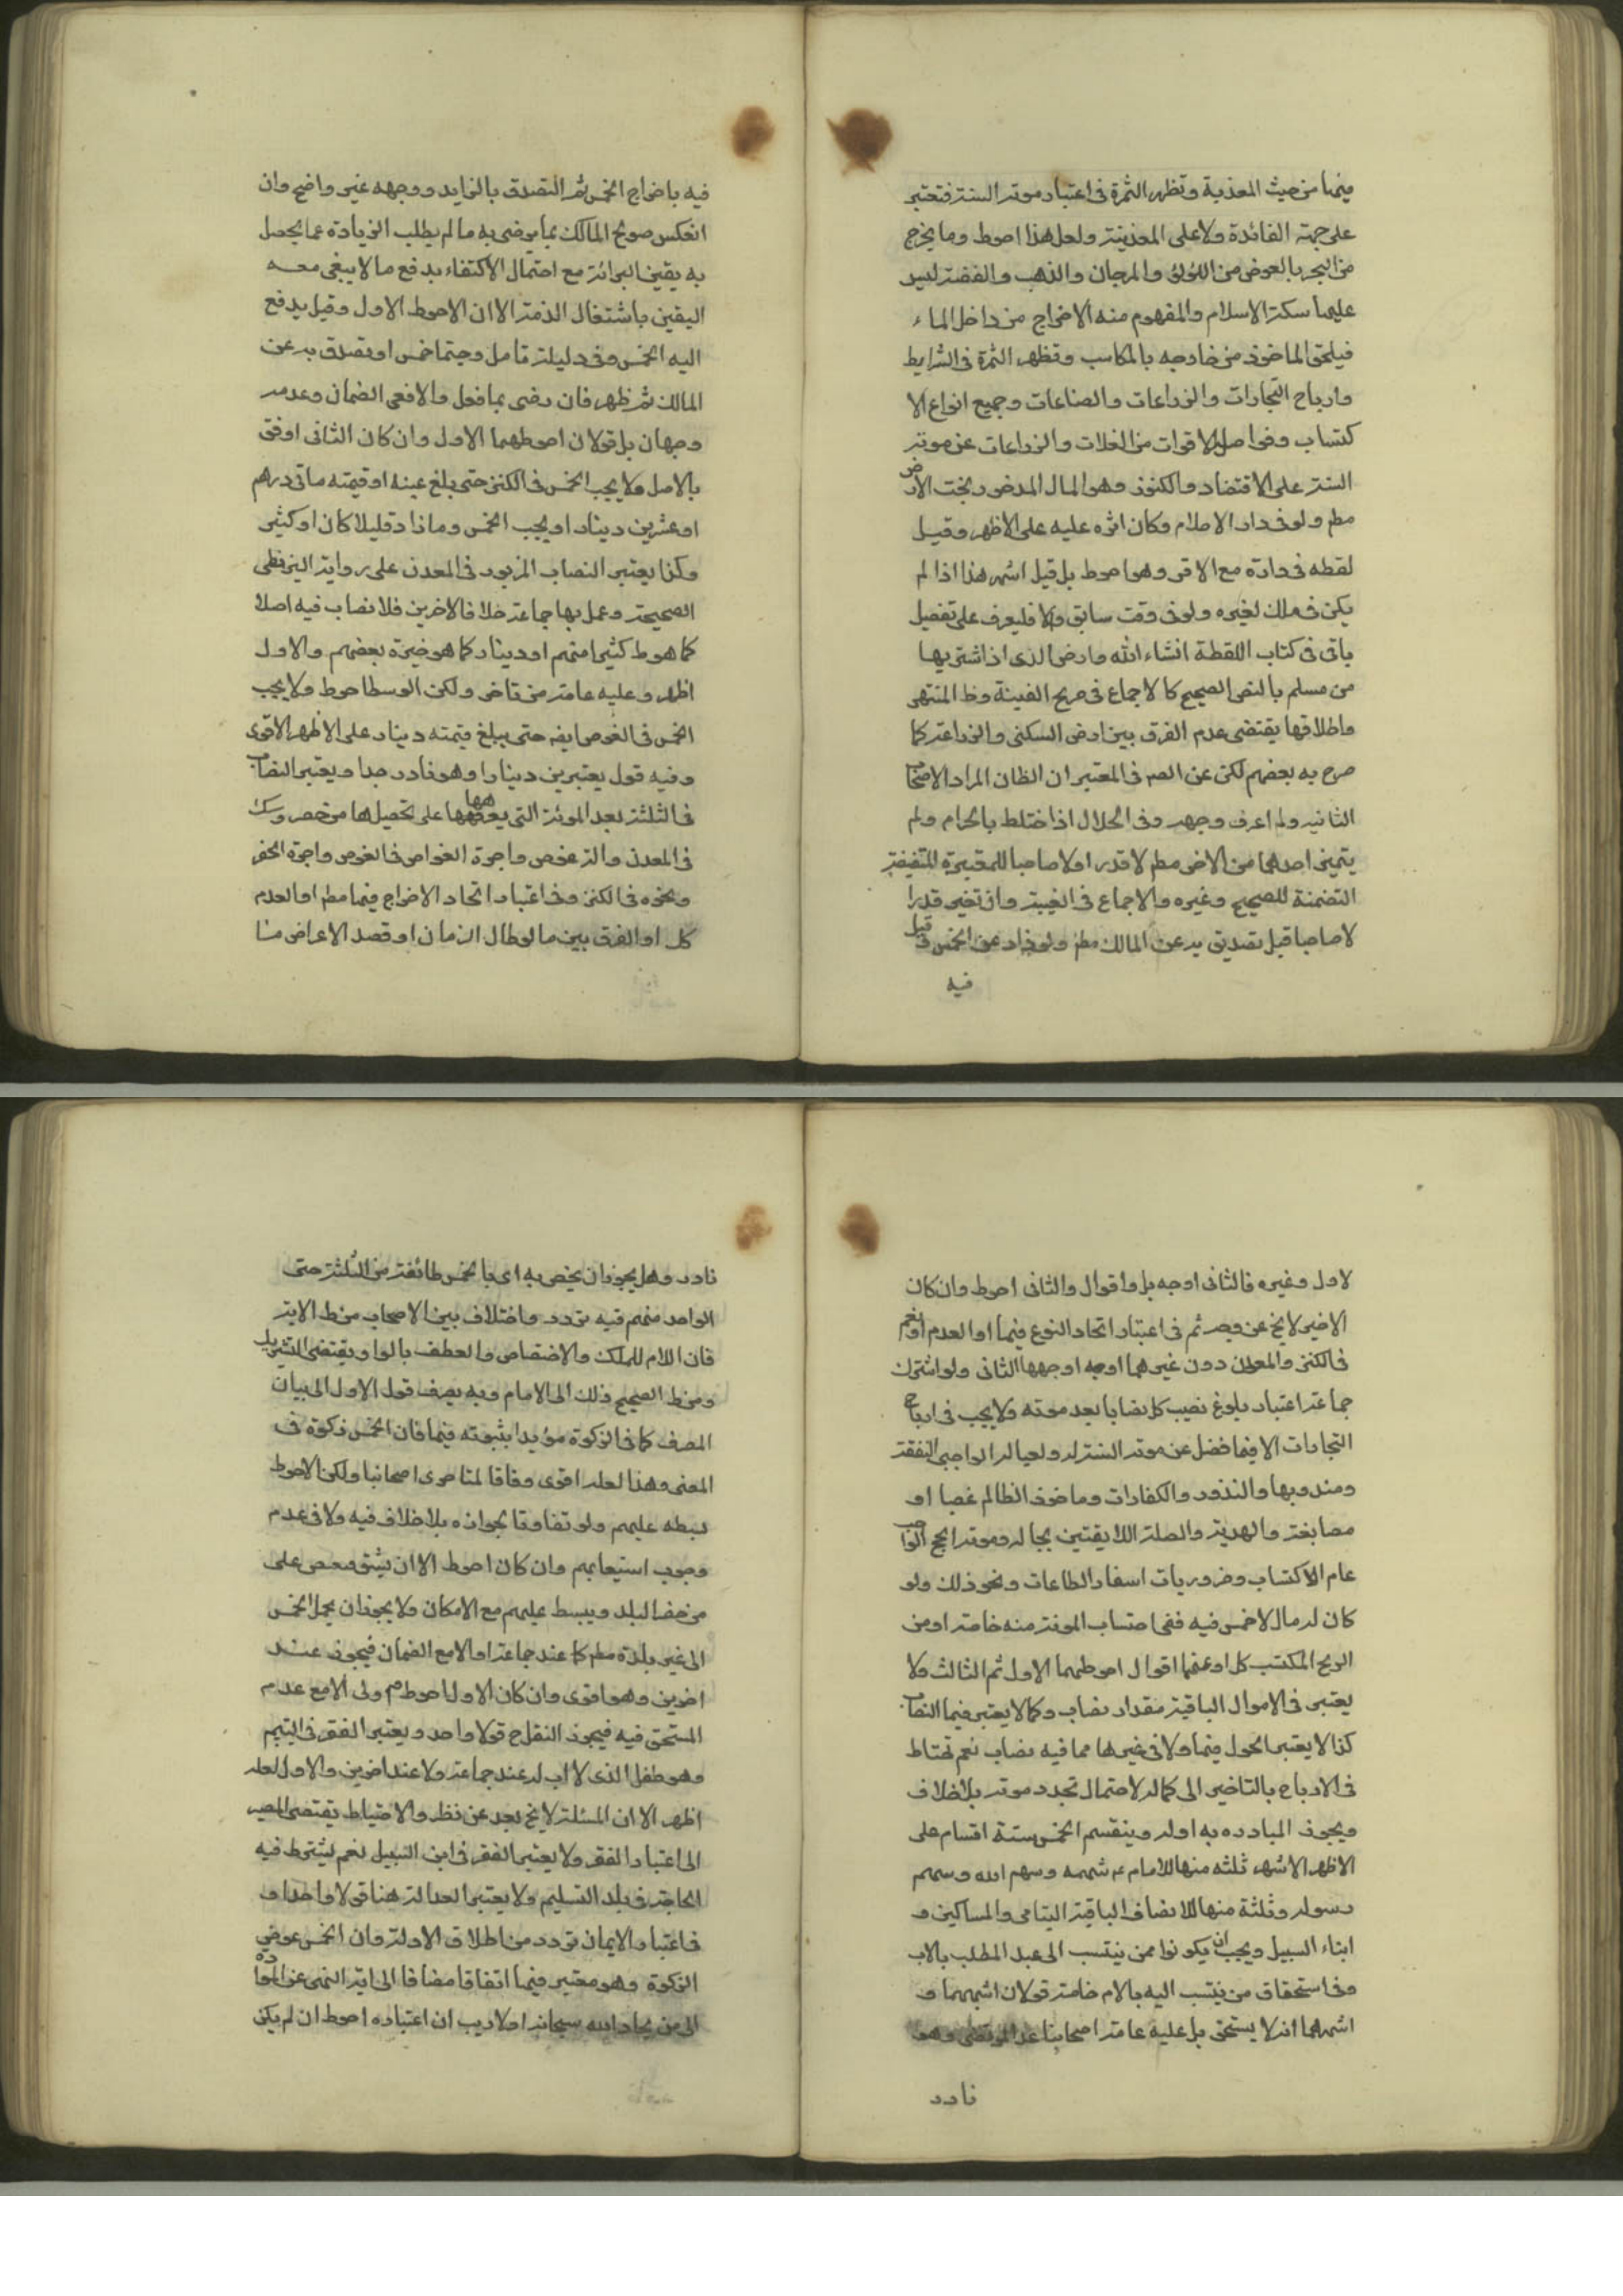 فيها من حيث المعدنية وتظهر الثمرة فى اعتبار موتة السنة فتعتبر
على جهة الفائدة ولا على المعدنية ولعل هذا احوط وما يخرج
من البحر بالغوص من اللؤلؤ والمرجان والذهب والفضة ليس
عليهما سكة الاسلام والمفهوم منه الاخراج من داخل الماء
فيلحق الماخوذ من خارجه بالمكاسب وتظهر الثمرة فى الشرايط
وارباح التجارات والزراعات والصناعات وجميع انواع الا
كتساب وفواصل الاقوات من الغلات والزراعات عن موتة
السنة على الاقتصاد والكنوز وهو المال المذخور تحت الارض
مطم ولو فى دار الاسلام وكان اثره عليه على الاظهر وقيل
لقطه فى داره مع الاثر وهو احوط بل قيل اشهر هذا اذا لم
يكن فى ملك لغيره ولو فى وقت سابق والا فليعرف على تفصيل
ياتى فى كتاب اللقطة انشاء الله وارض الذى اذا شتريها
من مسلم بالنص الصحيح كالاجماع فى صريح الغنية وظ المنتهى
واطلاقها يقتضى عدم الفرق بين ارض السكنى والزراعة كما
صرح به بعضهم لكن عن المص فى المعتبر ان الظان المراد الاصحاب
الثانيه ولم اعرف وجهه وفى الحلال اذا ختلط بالحرام ولم
يتميز احدهما من الاخر مطم لا قدرا ولا صاحبا للمعتبرة المستفيضة
التضمنة للصحيح وغيره والاجماع فى الغنية وان تميز قدرا
لا صاحبا قيل تصديق به عن المالك مطم ولو زاد عن الخمس وقيل
فيه
فيه باخراج الخمس ثم التصدق بالزايد ووجهه غير واضح وان
انعكس صولح المالك بما يرضى به ما لم يطلب الزيادة عما يحصل
به يقين البرائة مع احتمال الاكتفاء بدفع ما لا يبقى معه
اليقين باشتغال الذمة الا ان الاحوط الاول وقيل يدفع
اليه الخمس وفى دليلة تامل وحيثما خمس او تصدق به عن
المالك ثم ظهر فان رضى بما فعل والا ففى الضمان وعدمه
وجهان بل قولان احوطهما الاول وان كان الثانى اوفق
بالاصل ولا يجب الخمس فى الكنز حتى بلغ عينه او قيمته ماتى درهم
او عشرين دينار او يجب الخمس وما زاد قليلا كان او كثير
وكذا يعتبر النصاب المزبور فى المعدن على رواية البزنطى
الصحيحة وعمل بها جماعة خلافا لاخرين فلا نصاب فيه اصلا
كما هو ط كثيرا منهم او دينار كما هو خيرة بعضهم والاول
اظهر وعليه عامة من تاخر ولكن الوسط احوط ولا يجب
الخمس فى الغوص ايضه حتى يبلغ قيمته دينار على الاظهر الاقوى
وفيه قول بعشرين دينارا وهو نادر جدا ويعتبر النصاب
فى الثلثة بعد المونة التى يغرمها على تحصيلها من حفر وسك
فى المعدن والة غوص واجرة الغواص فى الغوص واجرة الحفر
ونحوه فى الكنز وفى اعتبار اتحاد الاخراج فيها مطم او العدم
كك او الفرق بين ما لو طال الزمان او قصد الاعراض فا
لاول وغيره فالثانى اوجه بل واقوال والثانى احوط وان كان
الاخير لا يخ عن وجه ثم فى اعتبار اتحاد النوع فيها او العدم او نعم
فى الكنز والمعدن دون غيرهما اوجه اوجهها الثانى ولو اشترك
جماعة اعتبار بلوغ نصيب كل نصابا بعد مونته ولا يجب فى ارباح
التجارات الا فيما فضل عن موتة السنة له ولعياله الواجبى النفقة
ومندوبها والنذور والكفارات وماخوذ الظالم غصبا او
مصانعة والهدية والصلة اللايقتين بحاله وموتة الحج الواجب
عام الاكتساب وضروريات اسفار الطاعات ونحو ذلك ولو
كان له مال لا خمس فيه ففى احتساب المونة منه خاصة او من
الربح المكتسب كل او عنهما اقوال احوطهما الاول ثم الثالث ولا
يعتبر فى الاموال الباقية مقدار نصاب وكما لا يعتبر فيها النصاب
كذا لا يعتبر الحول فيها ولا فى غيرها مما فيه نصاب نعم تحتاط
فى الارباح بالتاخير الى كماله لاحتمال تجدد موتة بلا خلاف
ويجوز المبادره به اوله وينقسم الخمس ستة اقسام على
الاظهر الاشهر ثلثه منها للامام ع سهمه وسهم الله وسهم
رسوله وثلثة منها للاصناف الباقية اليتامى والمساكين و
ابناء السبيل ويجب ان يكونوا ممن ينتسب الى عبد المطلب بالاب
وفى استحقاق من ينتسب اليه بالام خاصة قولان اشبههما و
اشهرهما انه لا يستحق بل عليه عامة اصحابنا عدا المرتضى وهو
نادر
نادر وهل يجوز ان يخص به اى بالخمس طائفة من الثلثة حتى
الواحد منهم فيه تردد واختلاف بين الاصحاب من ظ الاية
فان اللام للملك والاختصاص والعطف بالواو يقتضى التشريك
ومن ظ الصحيح ذلك الى الامام وبه يصرف قول الاول الى بيان
المصرف كما فى الزكوة مؤيدا بثبوته فيها فان الخمس زكوة فى
المعنى وهذا لعله اقوى وفاقا لمتاخرى اصحابنا ولكن الاحوط
بسطه عليهم ولو تفاوتا بجوازه بلا خلاف فيه ولا فى عدم
وجوب استيعابهم وان كان احوط الا ان يشق فيخص على
من حضر البلد ويبسط عليهم مع الامكان ولا يجوز ان يحمل الخمس
الى غير بلده مطم كما عند جماعة او الا مع الضمان فيجوز عند
اخرين وهو اقوى وان كان الاول احوط م ولى الا مع عدم
المستحق فيه فيجوز النقل ح قولا واحد ويعتبر الفقر فى اليتيم
وهو طفل الذى لا اب له عند جماعة ولا عند اخرين والاول لعله
اظهر الا ان المسئلة لا يخ بعد عن نظر والاحتياط يقتضى المصير
الى اعتبار الفقر ولا يعتبر الفقر فى ابن السبيل نعم يشترط فيه
الحاجة فى بلد التسليم ولا يعتبر العدالة هنا قولا واحدا و
فى اعتبار الايمان تردد من اطلاق الادلة وان الخمس عوض
الزكوة وهو معتبر فيها اتفاقا مضافا الى اية النهى عن الموادة
الى من يحاد الله سبحانه ولا ريب ان اعتباره احوط ان لم يكن